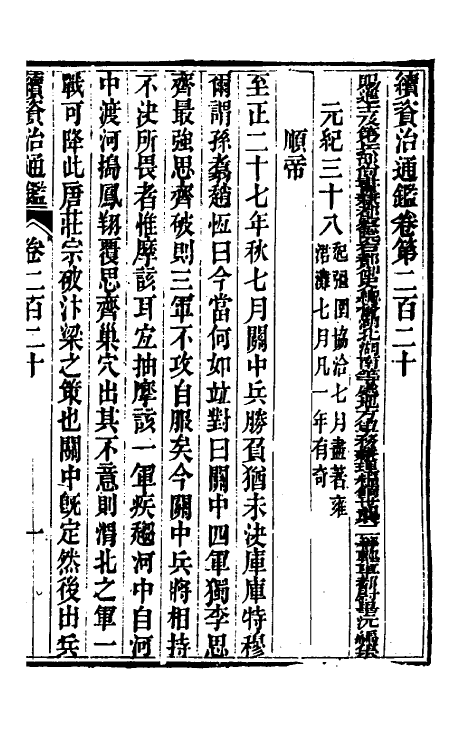 續資治通鑑卷第二百二十
元紀三十八起強圉協洽七月盡著雍涒灘七月凡一年有奇
順帝
至正二十七年秋七月關中兵勝負猶未決庫庫特穆
爾謂孫翥趙恆曰今當何如竝對曰關中四軍獨李思
齊最強思齊破則三軍不攻自服矣今關中兵將相持
不決所畏者惟摩該耳宜抽摩該一軍疾趨河中自河
中渡河搗鳳翔覆思齊巢穴出其不意則渭北之軍一
戰可降此唐莊宗破汴梁之策也關中旣定然後出兵
續資治通鑑 卷二百二十 一